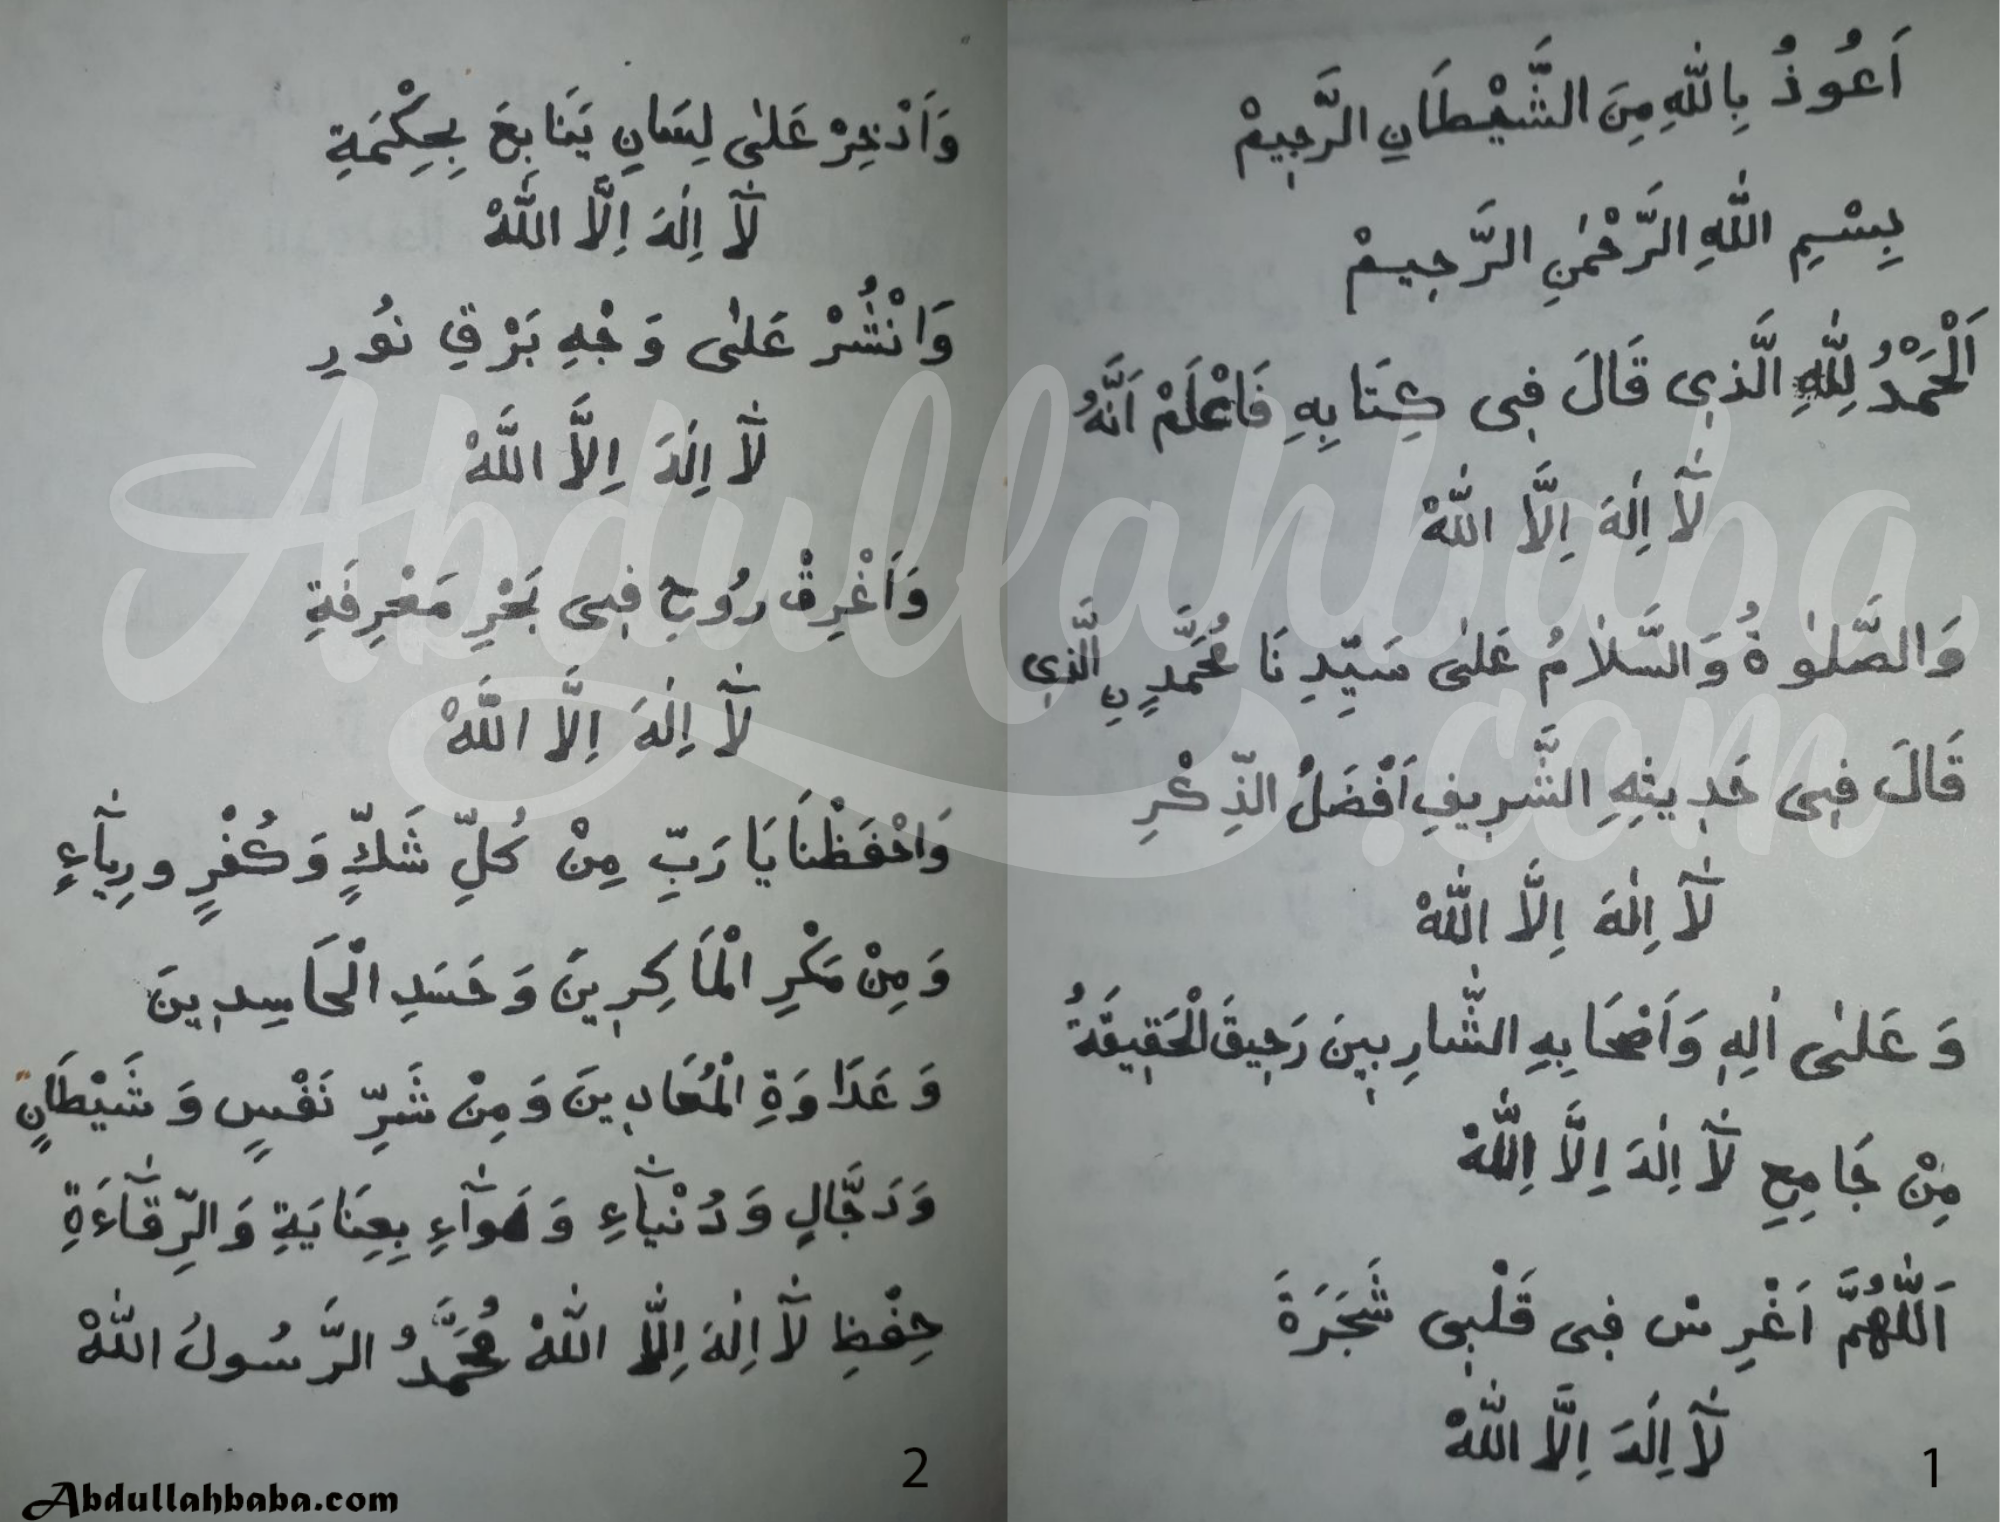 اَعُوذُ بِاللّٰهِ مِنَ الشَّيْطَانِ الرَّجِيمْ
بِسْمِ اللّٰهِ الرَّحْمٰنِ الرَّجِيمْ
اَلْحَمْدُ لِلّٰهِ الَّذِى قَالَ فِى كِتَابِهِ فَاعْلَمْ اَنَّهُ
لَٓا اِلٰهَ اِلَّا اللّٰهْ
وَالصَّلٰوةُ وَالسَّلَامُ عَلٰى سَيِّدِنَا مُحَمَّدٍ نِ الَّذِى
قَالَ فِى حَدِيثِهِ الشَّرِيفِ اَفْضَلُ الذِّكْرِ
لَٓا اِلٰهَ اِلَّا اللّٰهْ
وَ عَلٰى اٰلِهِ وَاَصْحَابِهِ الشَّارِبِينَ رَحِيقَ الْحَقِيقَةُ
مِنْ جَامِعِ لَٓا اِلٰهَ اِلَّا اللّٰهْ
اَللّٰهُمَّ اَغْرِسْ فِى قَلْبِى شَجَرَةَ
لَٓا اِلٰهَ اِلَّا اللّٰهْ
1
وَاَدْخِرْ عَلٰى لِسَانِ يَنَابِعَ بِحِكْمَةِ
لَٓا اِلٰهَ اِلَّا اللّٰهْ
وَانْشُرْ عَلٰى وَجْهِ بَرْقِ نُورِ
لَٓا اِلٰهَ اِلَّا اللّٰهْ
وَاَغْرِقْ رُوحِ فِى بَحْرِ مَعْرِفَةِ
لَٓا اِلٰهَ اِلَّا اللّٰهْ
وَاحْفَظْنَا يَا رَبِّ مِنْ كُلِّ شَكٍّ وَكُفْرٍ و رِيَٓاءٍ
وَمِنْ مَكْرِ الْمَاكِرِينَ وَحَسَدِ الْحَاسِدِينَ
وَعَدَاوَةِ الْمُعَادِينَ وَمِنْ شَرِّ نَفْسٍ وَشَيْطَانٍ
وَدَجَّالٍ وَدُنْيَٓاءِ وَهَوَٓاءِ بِعِنَايَةِ وَالرِّقَٓاءَةِ
حِفْظِ لَٓا اِلٰهَ اِلَّا اللّٰهْ مُحَمَّدُ الرَّسُولُ اللّٰهْ
2
Abdullahbaba.com
Abdullahbaba
.com